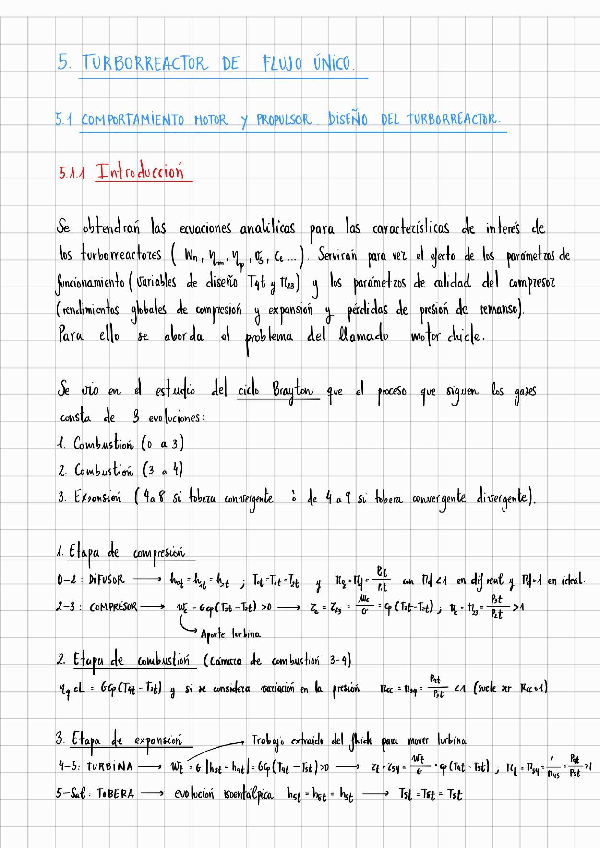 5. TURBORREACTOR DE FLUJO ÚNICO.
5.1 COMPORTAMIENTO MOTOR Y PROPULSOR. DISEÑO DEL TURBORREACTOR.
5.1.1 Introducción
Se obtendrán las ecuaciones analíticas para las características de interés de
los turborreactores ( Wn, ηm, ηp, σs, CE ...). Servirán para ver el efecto de los parámetros de
funcionamiento (variables de diseño T4t y π23) y los parámetros de calidad del compresor
(rendimientos globales de compresión y expansión y pérdidas de presión de remanso).
Para ello se aborda el problema del llamado motor chicle.
Se vio en el estudio del ciclo Brayton que el proceso que siguen los gases
consta de 3 evoluciones:
1. Combustión (0 a 3)
2. Combustión (3 a 4)
3. Expansión (4 a 8 si tobera convergente ó de 4 a 9 si tobera convergente divergente).
1. Etapa de compresión
0-2: DIFUSOR → h0t = h1t = h2t ; T0t = T1t = T2t y con πd<1 en dif real y πd=1 en ideal.
2-3: COMPRESOR → Wc = GCp(T3t - T2t) >0 → τc = τ23 = Wc/G = Cp(T3t - T2t) ; πc = π23 = P3t/P2t >1
Aporte turbina
2. Etapa de combustión (cámara de combustión 3-4)
ηq cL = GCp(T4t - T3t) y si se considera variación en la presión πcc = π34 = P4t/P3t <1 (suele ser πcc≈1)
3. Etapa de expansión Trabajo extraído del fluido para mover turbina
4-5: TURBINA → Wt = G |h5t - h4t| = GCp(T4t - T5t) >0 → = Wt/G = Cp(T4t - T5t) , = P4t/P5t >1
5-Sal: TOBERA → evolución isoentálpica h5t = h8t = h9t → T5t = T8t = T9t